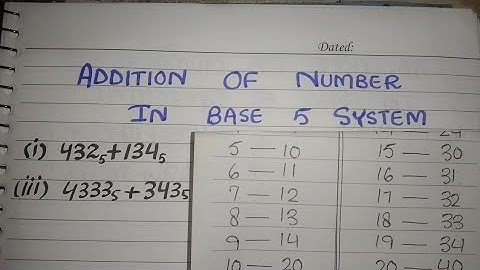 Dated:
ADDITION OF NUMBER
IN BASE 5 SYSTEM
(i) 432₅+134₅
(iii) 4333₅+343₅
5 — 10
6 — 11
7 — 12
8 — 13
9 — 14
10 — 20
15 — 30
16 — 31
17 — 32
18 — 33
19 — 34
20 — 40